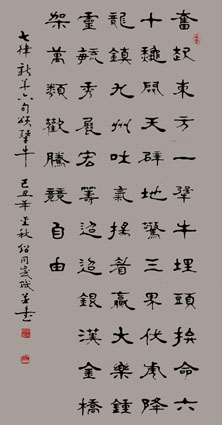 奮起東方一犟牛埋頭拚命六
十龝開天辟地驚三界伏虎降
龍鎮九州吐氣揚眉贏大樂鐘
靈毓秀展宏籌迢迢銀漢金橋
架萬類歡騰競自由
七律新華六旬頌犟牛 己丑年金秋